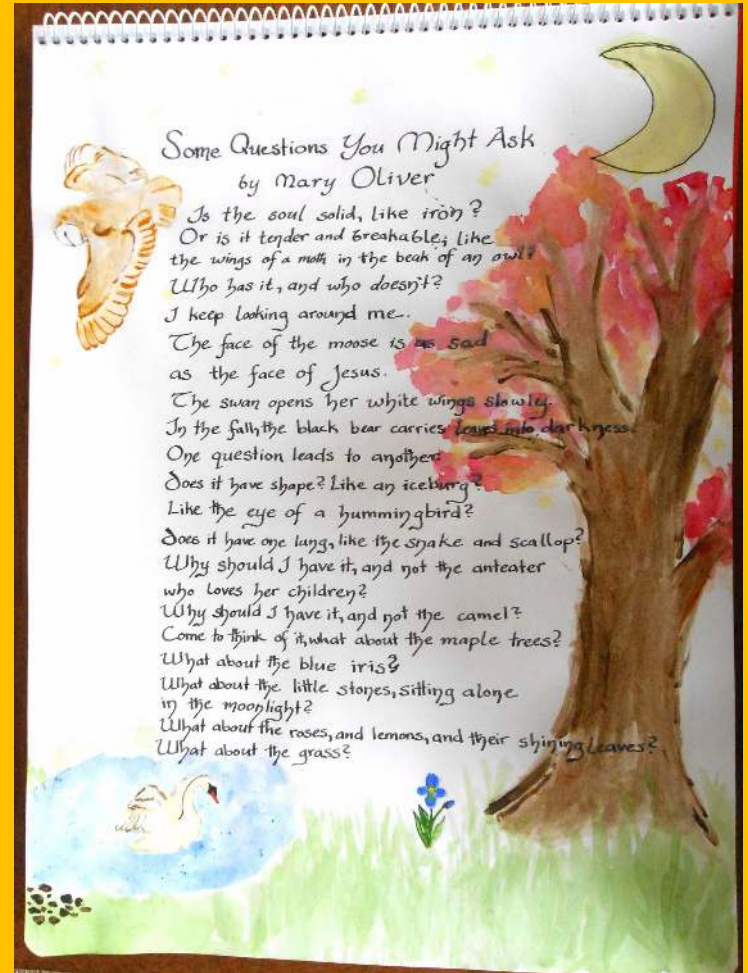 Some Questions You Might Ask
by Mary Oliver
Is the soul solid, like iron?
Or is it tender and breakable, like
the wings of a moth in the beak of an owl?
Who has it, and who doesn't?
I keep looking around me.
The face of the moose is as sad
as the face of Jesus.
The swan opens her white wings slowley.
In the fall, the black bear carries leaves into darkness.
One question leads to another.
Does it have shape? Like an iceburg?
Like the eye of a hummingbird?
Does it have one lung, like the snake and scallop?
Why should I have it, and not the anteater
who loves her children?
Why should I have it, and not the camel?
Come to think of it, what about the maple trees?
What about the blue iris?
What about the little stones, sitting alone
in the moonlight?
What about the roses, and lemons, and their shining leaves?
What about the grass?